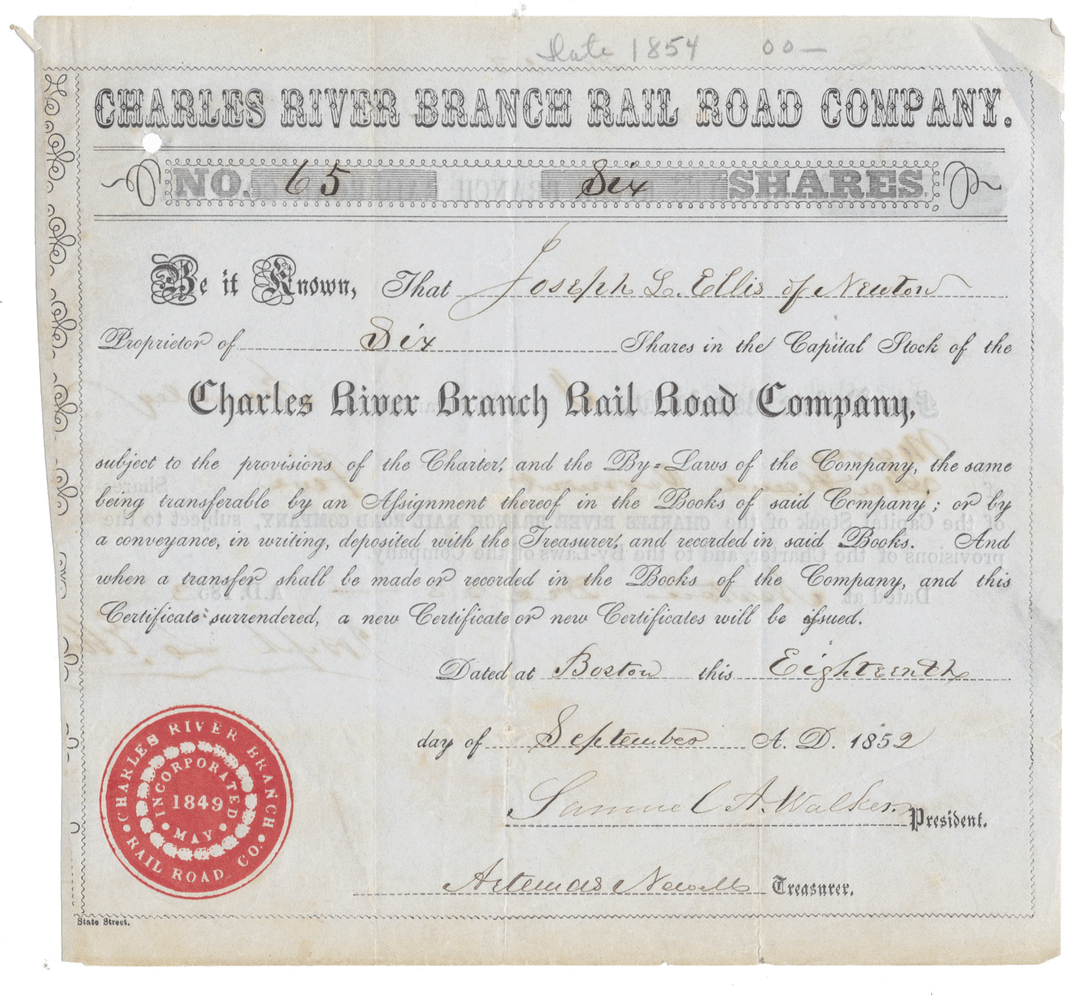 Date 1854 00—
CHARLES RIVER BRANCH RAIL ROAD COMPANY.
NO. 65 Six SHARES.
Be it Known, That Joseph L. Ellis of Newton
Proprietor of Six Shares in the Capital Stock of the
Charles River Branch Rail Road Company,
subject to the provisions of the Charter, and the By-Laws of the Company, the same
being transferable by an Assignment thereof in the Books of said Company; or by
a conveyance, in writing, deposited with the Treasurer, and recorded in said Books. And
when a transfer shall be made or recorded in the Books of the Company, and this
Certificate surrendered, a new Certificate or new Certificates will be issued.
Dated at Boston this Eighteenth
day of September A. D. 1852
Samuel A. Walker President.
Artemas Newell Treasurer.
CHARLES RIVER BRANCH
RAIL ROAD CO.
INCORPORATED
1849
MAY
State Street.